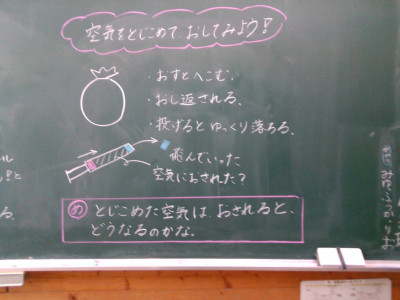 空気をとじこめて おしてみよう!
・おすとへこむ。
・おし返される。
・投げるとゆっくり落ちる。
飛んでいった
空気におされた?
め とじこめた空気は おされると、
どうなるのかな。